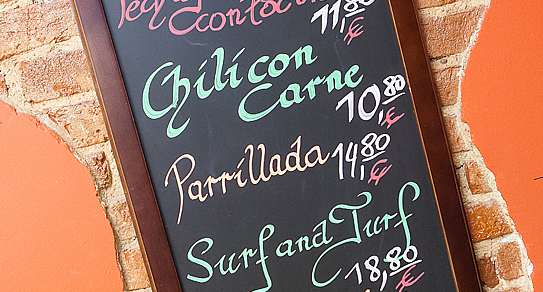 11,80 €
Chili con
Carne
10,80 €
Parrillada 14,80 €
Surf and Turf
18,80 €